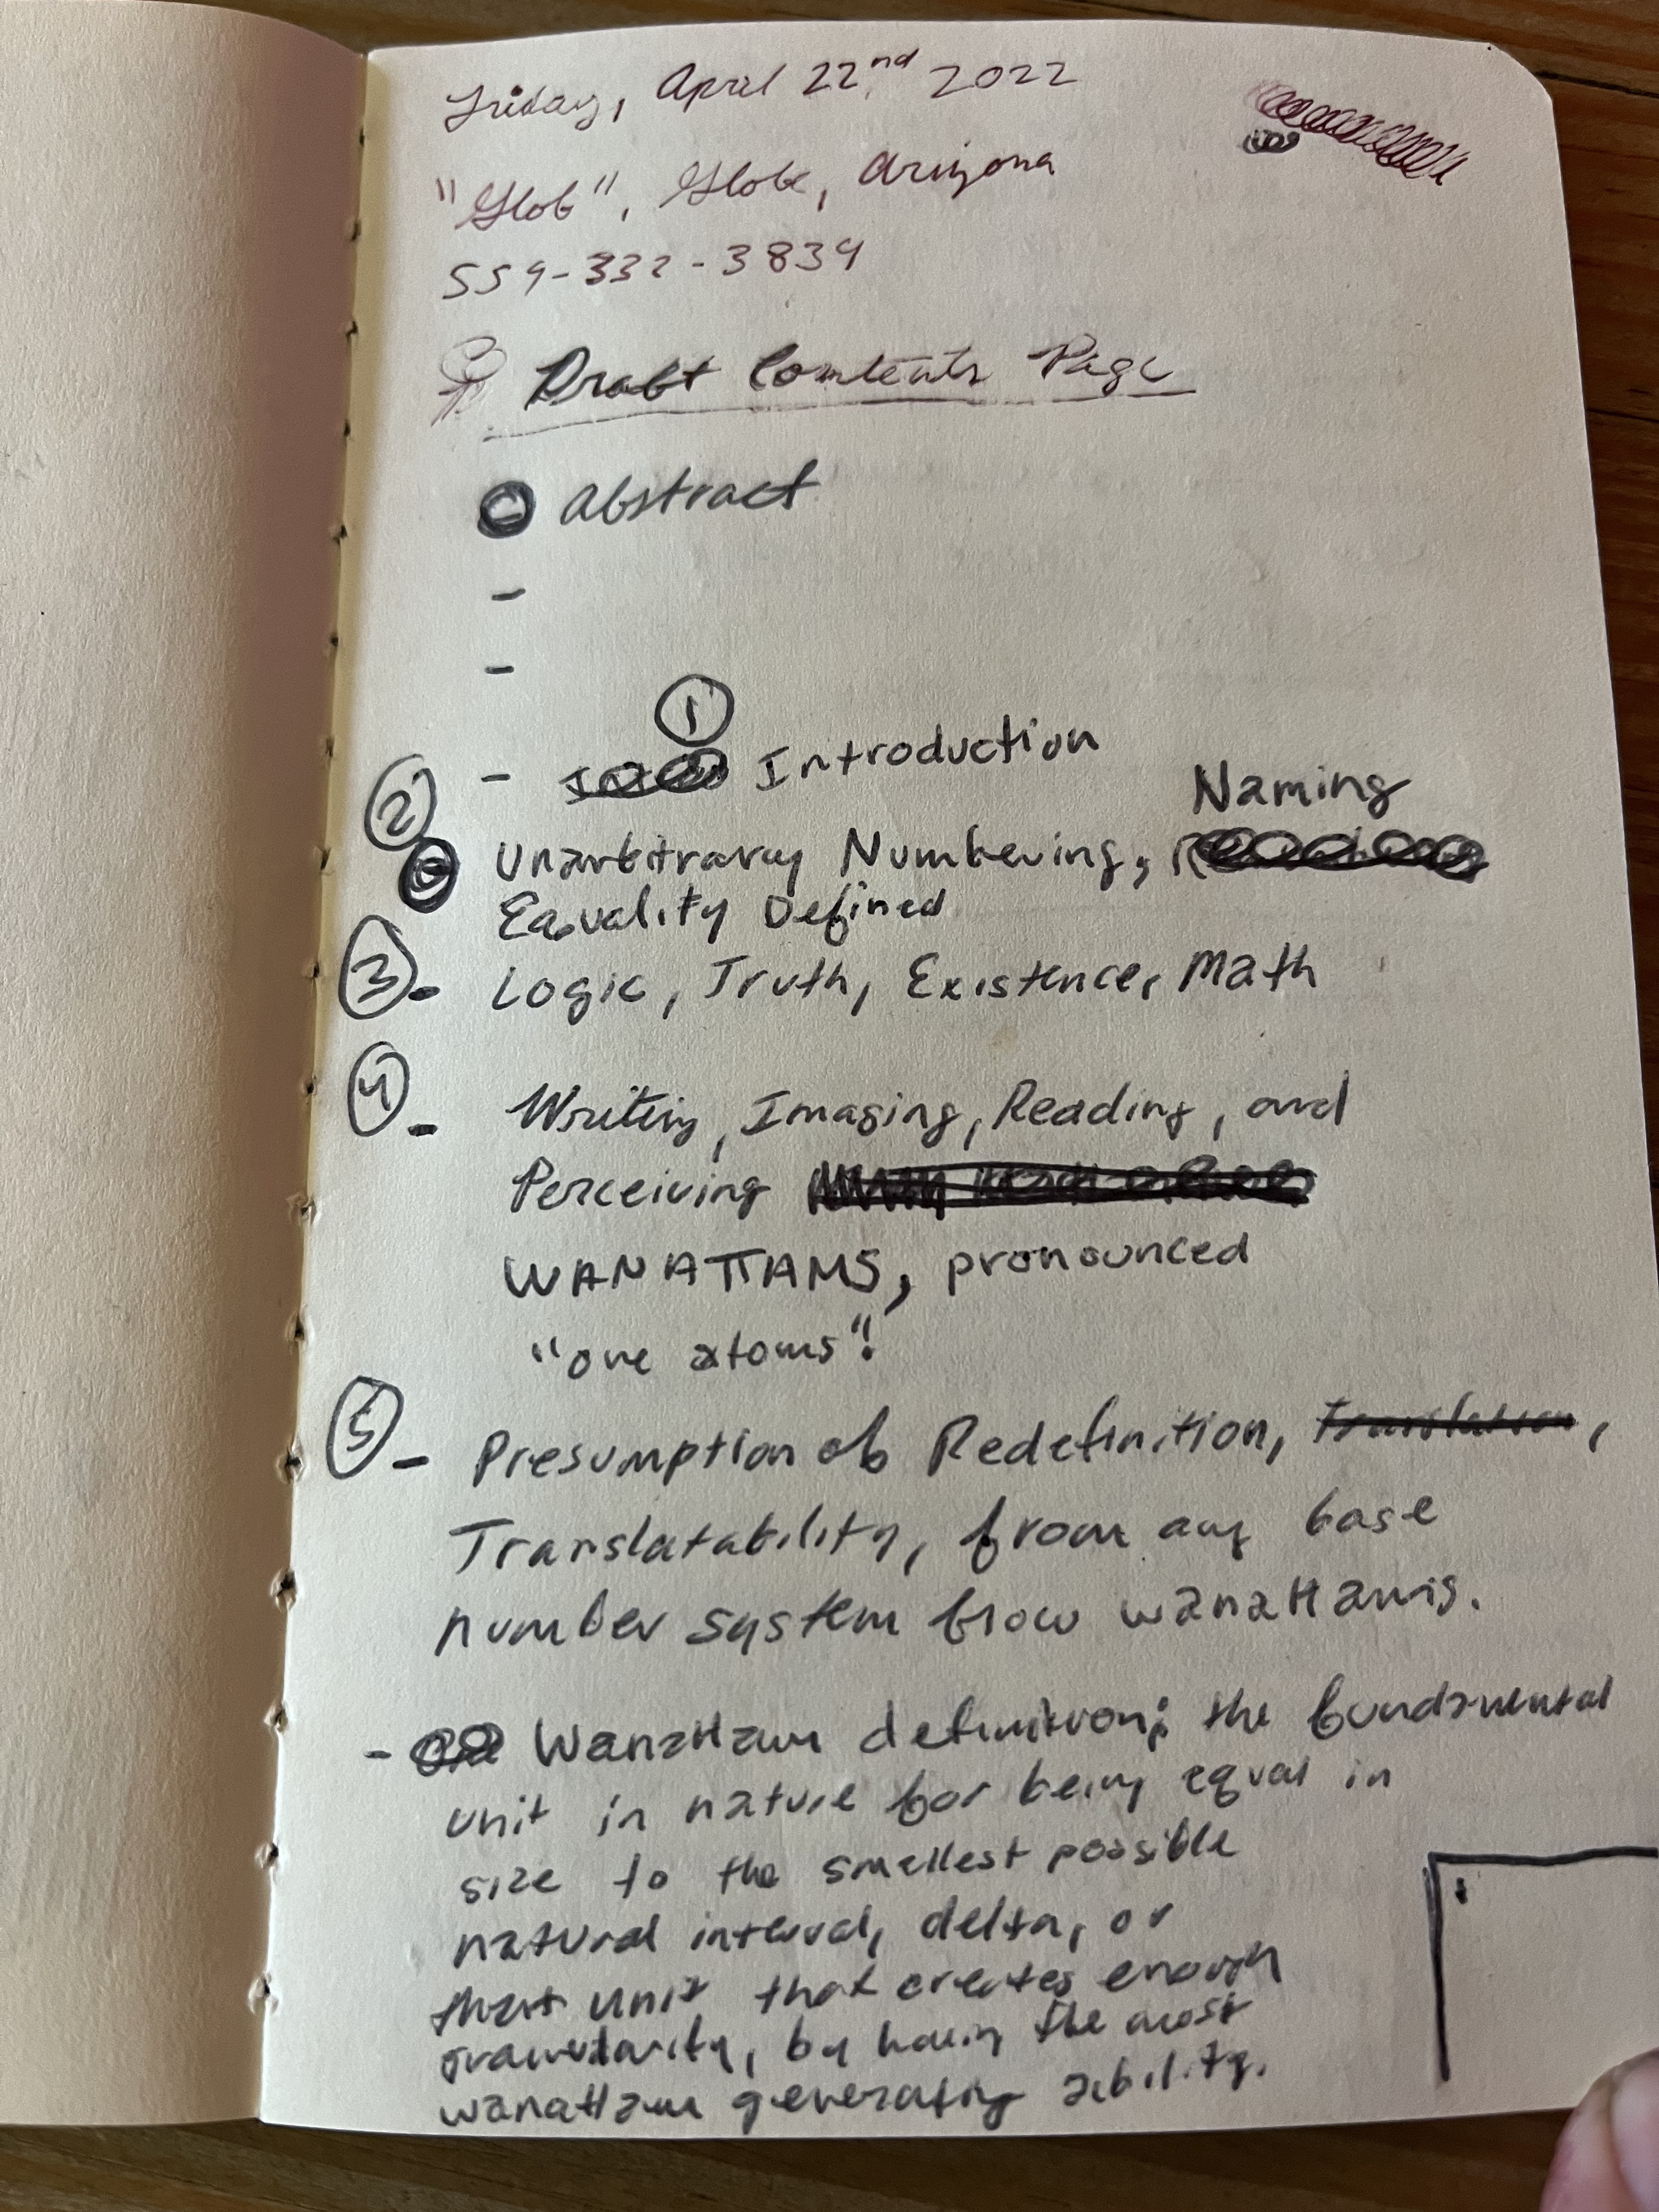 Friday, April 22nd, 2022
"Glob", Globe, Arizona
559-332-3839
Draft Contents Page
Abstract
-
-
①
- Introduction
② Naming
Unarbitrary Numbering,
Equality Defined
③ - Logic, Truth, Existence, Math
④ - Writing, Imaging, Reading, and
Perceiving
WANATTAMS, pronounced
"one atoms"!
⑤ - Presumption of Redefinition, Translation,
Translatability, from any base
number system from wanattams.
- Wanattam definition: the fundamental
unit in nature for being equal in
size to the smallest possible
natural interval, delta, or
that unit that creates enough
granularity, by having the most
wanattam generating ability.